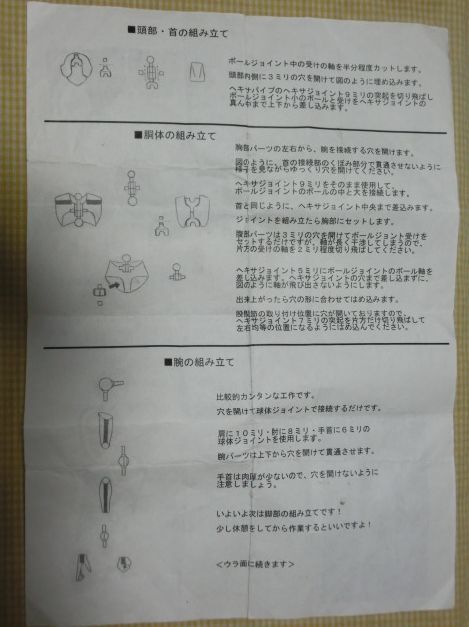 ■頭部・首の組み立て
ボールジョイント中の受けの軸を半分程度カットします。
頭部内側に3ミリの穴を開けて図のように埋め込みます。
ヘキサパイプのヘキサジョイント9ミリの突起を切り飛ばし
ボールジョイント小のボールと受けをヘキサジョイントの
真ん中まで上下から差し込みます。
■胴体の組み立て
胸部パーツの左右から、腕を接続する穴を開けます。
図のように、首の接続部のくぼみ部分で貫通させないように
様子を見ながらゆっくり穴を開けてください。
ヘキサジョイント9ミリをそのまま使用して、
ボールジョイントのボールの中と大を接続します。
首と同じように、ヘキサジョイント中央まで差込みます。
ジョイントを組み立たら胸部にセットします。
腹部パーツは3ミリの穴を開けてボールジョント受けを
セットするだけですが、軸が長く干渉してしまうので、
片方の受けの軸を2ミリ程度切り飛ばしてください。
ヘキサジョイント5ミリにボールジョイントのボール軸を
差し込みます。ヘキサジョイントの穴まで差し込まずに、
図のように軸が飛び出さないようにします。
出来上がったら穴の形に合わせてはめ込みます。
股関節の取り付け位置に穴が開いておりますので、
ヘキサジョイント7ミリの突起を片方だけ切り飛ばして
左右均等の位置になるようにはめ込んでください。
■腕の組み立て
比較的カンタンな工作です。
穴を開けて球体ジョイントで接続するだけです。
肩に10ミリ・肘に8ミリ・手首に6ミリの
球体ジョイントを使用します。
腕パーツは上下から穴を開けて貫通させます。
手首は肉厚が少ないので、穴を開けないように
注意しましょう。
いよいよ次は脚部の組み立てです!
少し休憩をしてから作業するといいですよ!
<ウラ面に続きます>